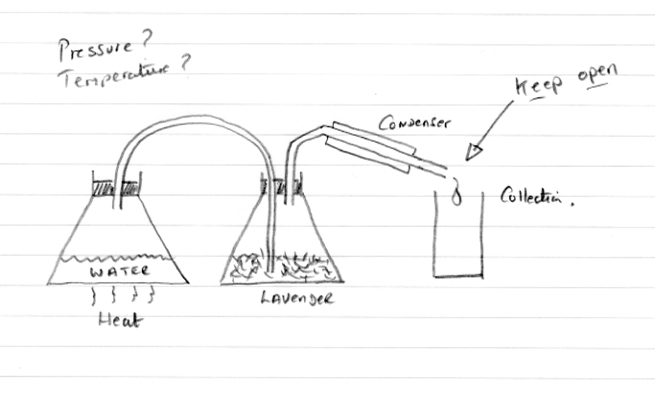 Pressure?
Temperature?
Keep open
Condenser
Collection.
WATER
LAVENDER
Heat